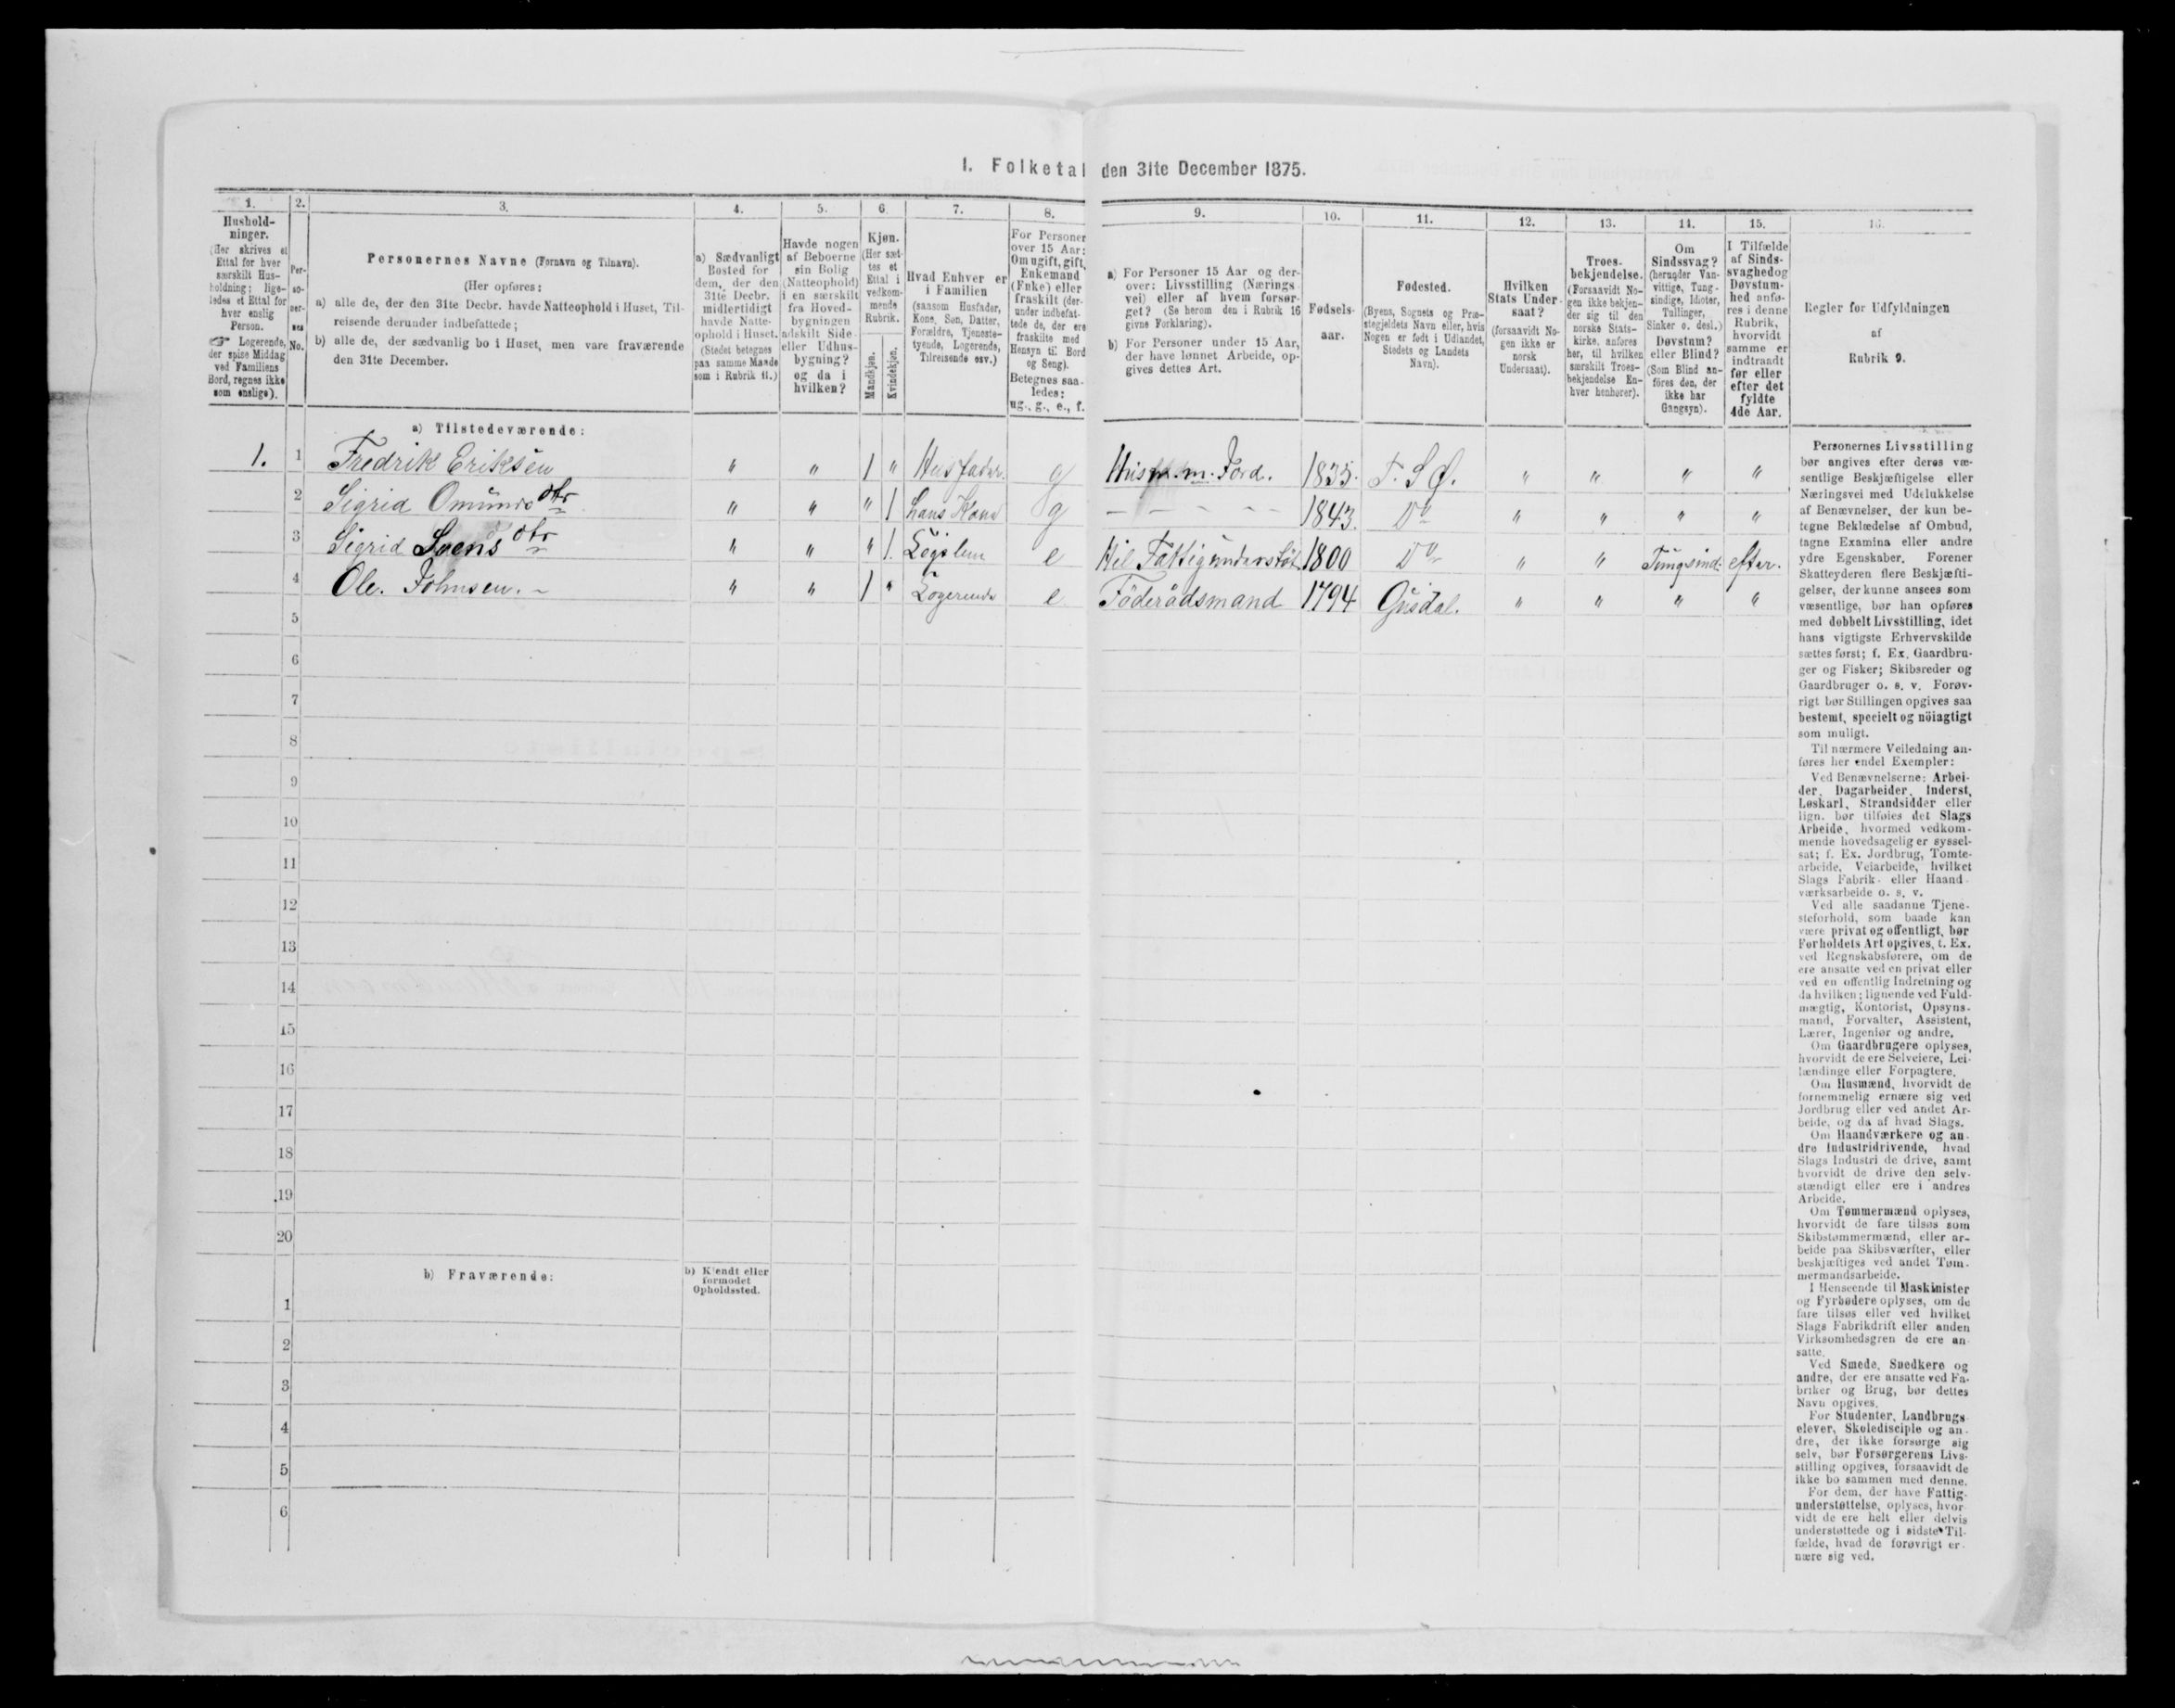 1. Folketal den 31te December 1875.
1. 2. 3. 4. 5. 6. 7. 8. 9. 10. 11. 12. 13. 14. 15. 16.
Hushold-
ninger.
(Her skrives et
Ettal for hver
særskilt Hus-
holdning; lige-
ledes et Ettal for
hver enslig
Person.
☞ Logerende,
der spise Middag
ved Familiens
Bord, regnes ikke
som enslige).
Per-
so-
ner-
nes
No.
Personernes Navne (Fornavn og Tilnavn).
(Her opføres:
a) alle de, der den 31te Decbr. havde Natteophold i Huset, Til-
reisende derunder indbefattede;
b) alle de, der sædvanlig bo i Huset, men vare fraværende
den 31te December.
a) Sædvanligt
Bosted for
dem, der den
31te Decbr.
midlertidigt
havde Natte-
ophold i Huset.
(Stedet betegnes
paa samme Maade
som i Rubrik 11.)
Havde nogen
af Beboerne
sin Bolig
(Natteophold)
i en særskilt
fra Hoved-
bygningen
adskilt Side-
eller Udhus-
bygning?
og da i
hvilken?
Kjøn.
(Her sæt-
tes et
Ettal i
vedkom-
mende
Rubrik.
Mandkjøn.
Kvindekjøn.
Hvad Enhver er
i Familien
(saasom Husfader,
Kone, Søn, Datter,
Forældre, Tjeneste-
tyende, Logerende,
Tilreisende osv.)
For Personer
over 15 Aar:
Om ugift, gift,
Enkemand
(Enke) eller
fraskilt (der-
under indbefat-
tede de, der ere
fraskilte med
Hensyn til Bord
og Seng).
Betegnes saa-
ledes:
ug., g., e., f.
a) For Personer 15 Aar og der-
over: Livsstilling (Nærings-
vei) eller af hvem forsør-
get? (Se herom den i Rubrik 16
givne Forklaring).
b) For Personer under 15 Aar,
der have lønnet Arbeide, op-
gives dettes Art.
Fødsels-
aar.
Fødested.
(Byens, Sognets og Præ-
stegjeldets Navn eller, hvis
Nogen er født i Udlandet,
Stedets og Landets
Navn).
Hvilken
Stats Under-
saat?
(forsaavidt No-
gen ikke er
norsk
Undersaat).
Troes-
bekjendelse.
(Forsaavidt No-
gen ikke bekjen-
der sig til den
norske Stats-
kirke, anføres
her, til hvilken
særskilt Troes-
bekjendelse En-
hver henhører).
Om
Sindssvag?
(herunder Van-
vittige, Tung-
sindige, Idioter,
Tullinger,
Sinker o. desl.)
Døvstum?
eller Blind?
(Som Blind an-
føres den, der
ikke har
Gangsyn).
I Tilfælde
af Sinds-
svaghed og
Døvstum-
hed anfø-
res i denne
Rubrik,
hvorvidt
samme er
indtraadt
før eller
efter det
fyldte
4de Aar.
Regler for Udfyldningen
af
Rubrik 9.
a) Tilstedeværende:
1. 1 Fredrik Eriksen " " 1 " Husfader g Husm. m. Jord. 1835. T. S Ø. " " " "
2 Sigrid Omunds dtr " " " 1 hans Kone g – – – – – 1843. Do " " " "
3 Sigrid Svens dtr " " " 1. e Fattigunderstöt 1800 Do " " Tungsind. efter.
4 Ole. Johnsen. " " 1 " Logerende e Föderådsmand 1794 Gusdal. " " " "
5
6
7
8
9
10
11
12
13
14
15
16
17
18
19
20
b) Fraværende:
b) Kjendt eller
formodet
Opholdssted.
1
2
3
4
5
6
Personernes Livsstilling
bør angives efter deres væ-
sentlige Beskjæftigelse eller
Næringsvei med Udelukkelse
af Benævnelser, der kun be-
tegne Beklædelse af Ombud,
tagne Examina eller andre
ydre Egenskaber. Forener
Skatteyderen flere Beskjæfti-
gelser, der kunne ansees som
væsentlige, bør han opføres
med dobbelt Livsstilling, idet
hans vigtigste Erhvervskilde
sættes først; f. Ex. Gaardbru-
ger og Fisker; Skibsreder og
Gaardbruger o. s. v. Forøv-
rigt bør Stillingen opgives saa
bestemt, specielt og nöiagtigt
som muligt.
Til nærmere Veiledning an-
føres her endel Exempler:
Ved Benævnelserne: Arbei-
der, Dagarbeider, Inderst,
Løskarl, Strandsidder eller
lign. bør tilføies det Slags
Arbeide, hvormed vedkom-
mende hovedsagelig er syssel-
sat; f. Ex. Jordbrug, Tomte-
arbeide, Veiarbeide, hvilket
Slags Fabrik- eller Haand-
værksarbeide o. s. v.
Ved alle saadanne Tjene-
steforhold, som baade kan
være privat og offentligt, bør
Forholdets Art opgives, t. Ex.
ved Regnskabsførere, om de
ere ansatte ved en privat eller
ved en offentlig Indretning og
da hvilken; lignende ved Fuld-
mægtig, Kontorist, Opsyns-
mand, Forvalter, Assistent,
Lærer, Ingeniør og andre.
Om Gaardbrugere oplyses,
hvorvidt de ere Selveiere, Lei-
lændinge eller Forpagtere.
Om Husmænd, hvorvidt de
fornemmelig ernære sig ved
Jordbrug eller ved andet Ar-
beide, og da af hvad Slags.
Om Haandværkere og an-
dre Industridrivende, hvad
Slags Industri de drive, samt
hvorvidt de drive den selv-
stændigt eller ere i andres
Arbeide.
Om Tømmermænd oplyses,
hvorvidt de fare tilsøs som
Skibstømmermænd, eller ar-
beide paa Skibsværfter, eller
beskjæftiges ved andet Tøm-
mermandsarbeide.
I Henseende til Maskinister
og Fyrbødere oplyses, om de
fare tilsøs eller ved hvilket
Slags Fabrikdrift eller anden
Virksomhedsgren de ere an-
satte.
Ved Smede, Snedkere og
andre, der ere ansatte ved Fa-
briker og Brug, bør dettes
Navn opgives.
For Studenter, Landbrugs-
elever, Skoledisciple og an-
dre, der ikke forsørge sig
selv, bør Forsørgerens Livs-
stilling opgives, forsaavidt de
ikke bo sammen med denne.
For dem, der have Fattig-
understøttelse, oplyses, hvor-
vidt de ere helt eller delvis
understøttede og i sidste Til-
fælde, hvad de forøvrigt er-
nære sig ved.